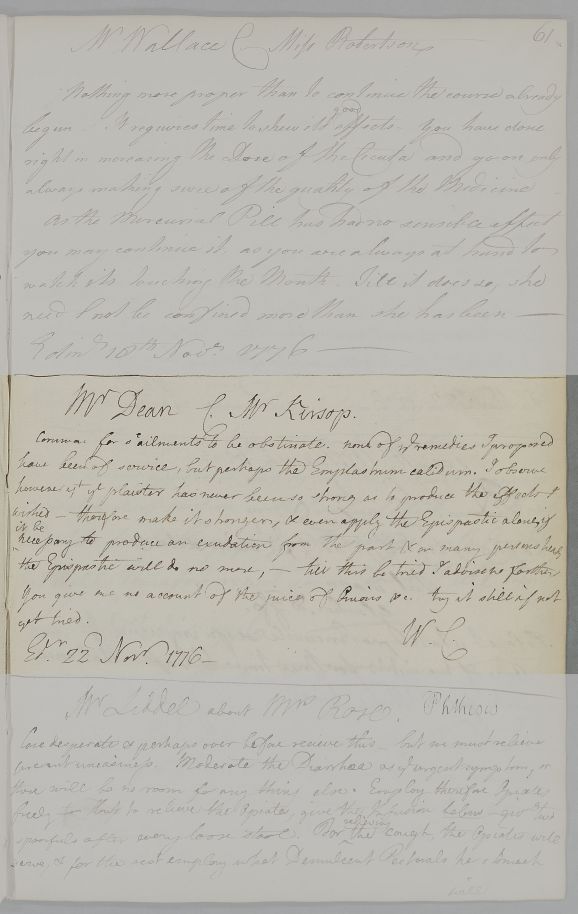 61.
Mr Wallace C. Miss Robertson
Nothing more proper than to continue the course already
begun. It requires time to shew its good effects. You have done
right in increasing the Dose of the Cicuta and go on only
always making sure of the quality of the Medicine
As the Mercurial Pill has had no sensible effect
you may continue it, as you are always at hand to
watch its touching the Mouth. Till it does so, she
need not be confined more than she has been —
Edinr 18th Novr 1776 —
Mr Dean C. Mr Kirsop.
Common for such ailments to be obstinate. none of ye remedies I proposed
have been of service, but perhaps the Emplastrum calidum. I observe
however yt ye plaister has never been so strong as to produce the effects I
wished — therefore make it stronger, & even apply the Epispastic alone if
it be
necessary to produce an exudation from the part & in many persons
the Epispastic will do no more, — till this be tried I advise no farther
You give me no account of the juice of &c. try it still if not
yet tried.
W. C.
Edr. 22d Novr. 1776 —
Mr Liddel about Mrs Rose. Phthisis
Case desperate & perhaps over before receive this — but we must relieve
uneasiness. Moderate the Diarrhea as if urgent symptom, or
there will be no room for any thing else. Employ therefore Opiates
freely to relieve the Opiates, give the Infusion two
spoonfuls after every loose stool. For relieving the cough, the Opiates will
serve, & for the rest employ what Demulcent Pectorals her stomach
will